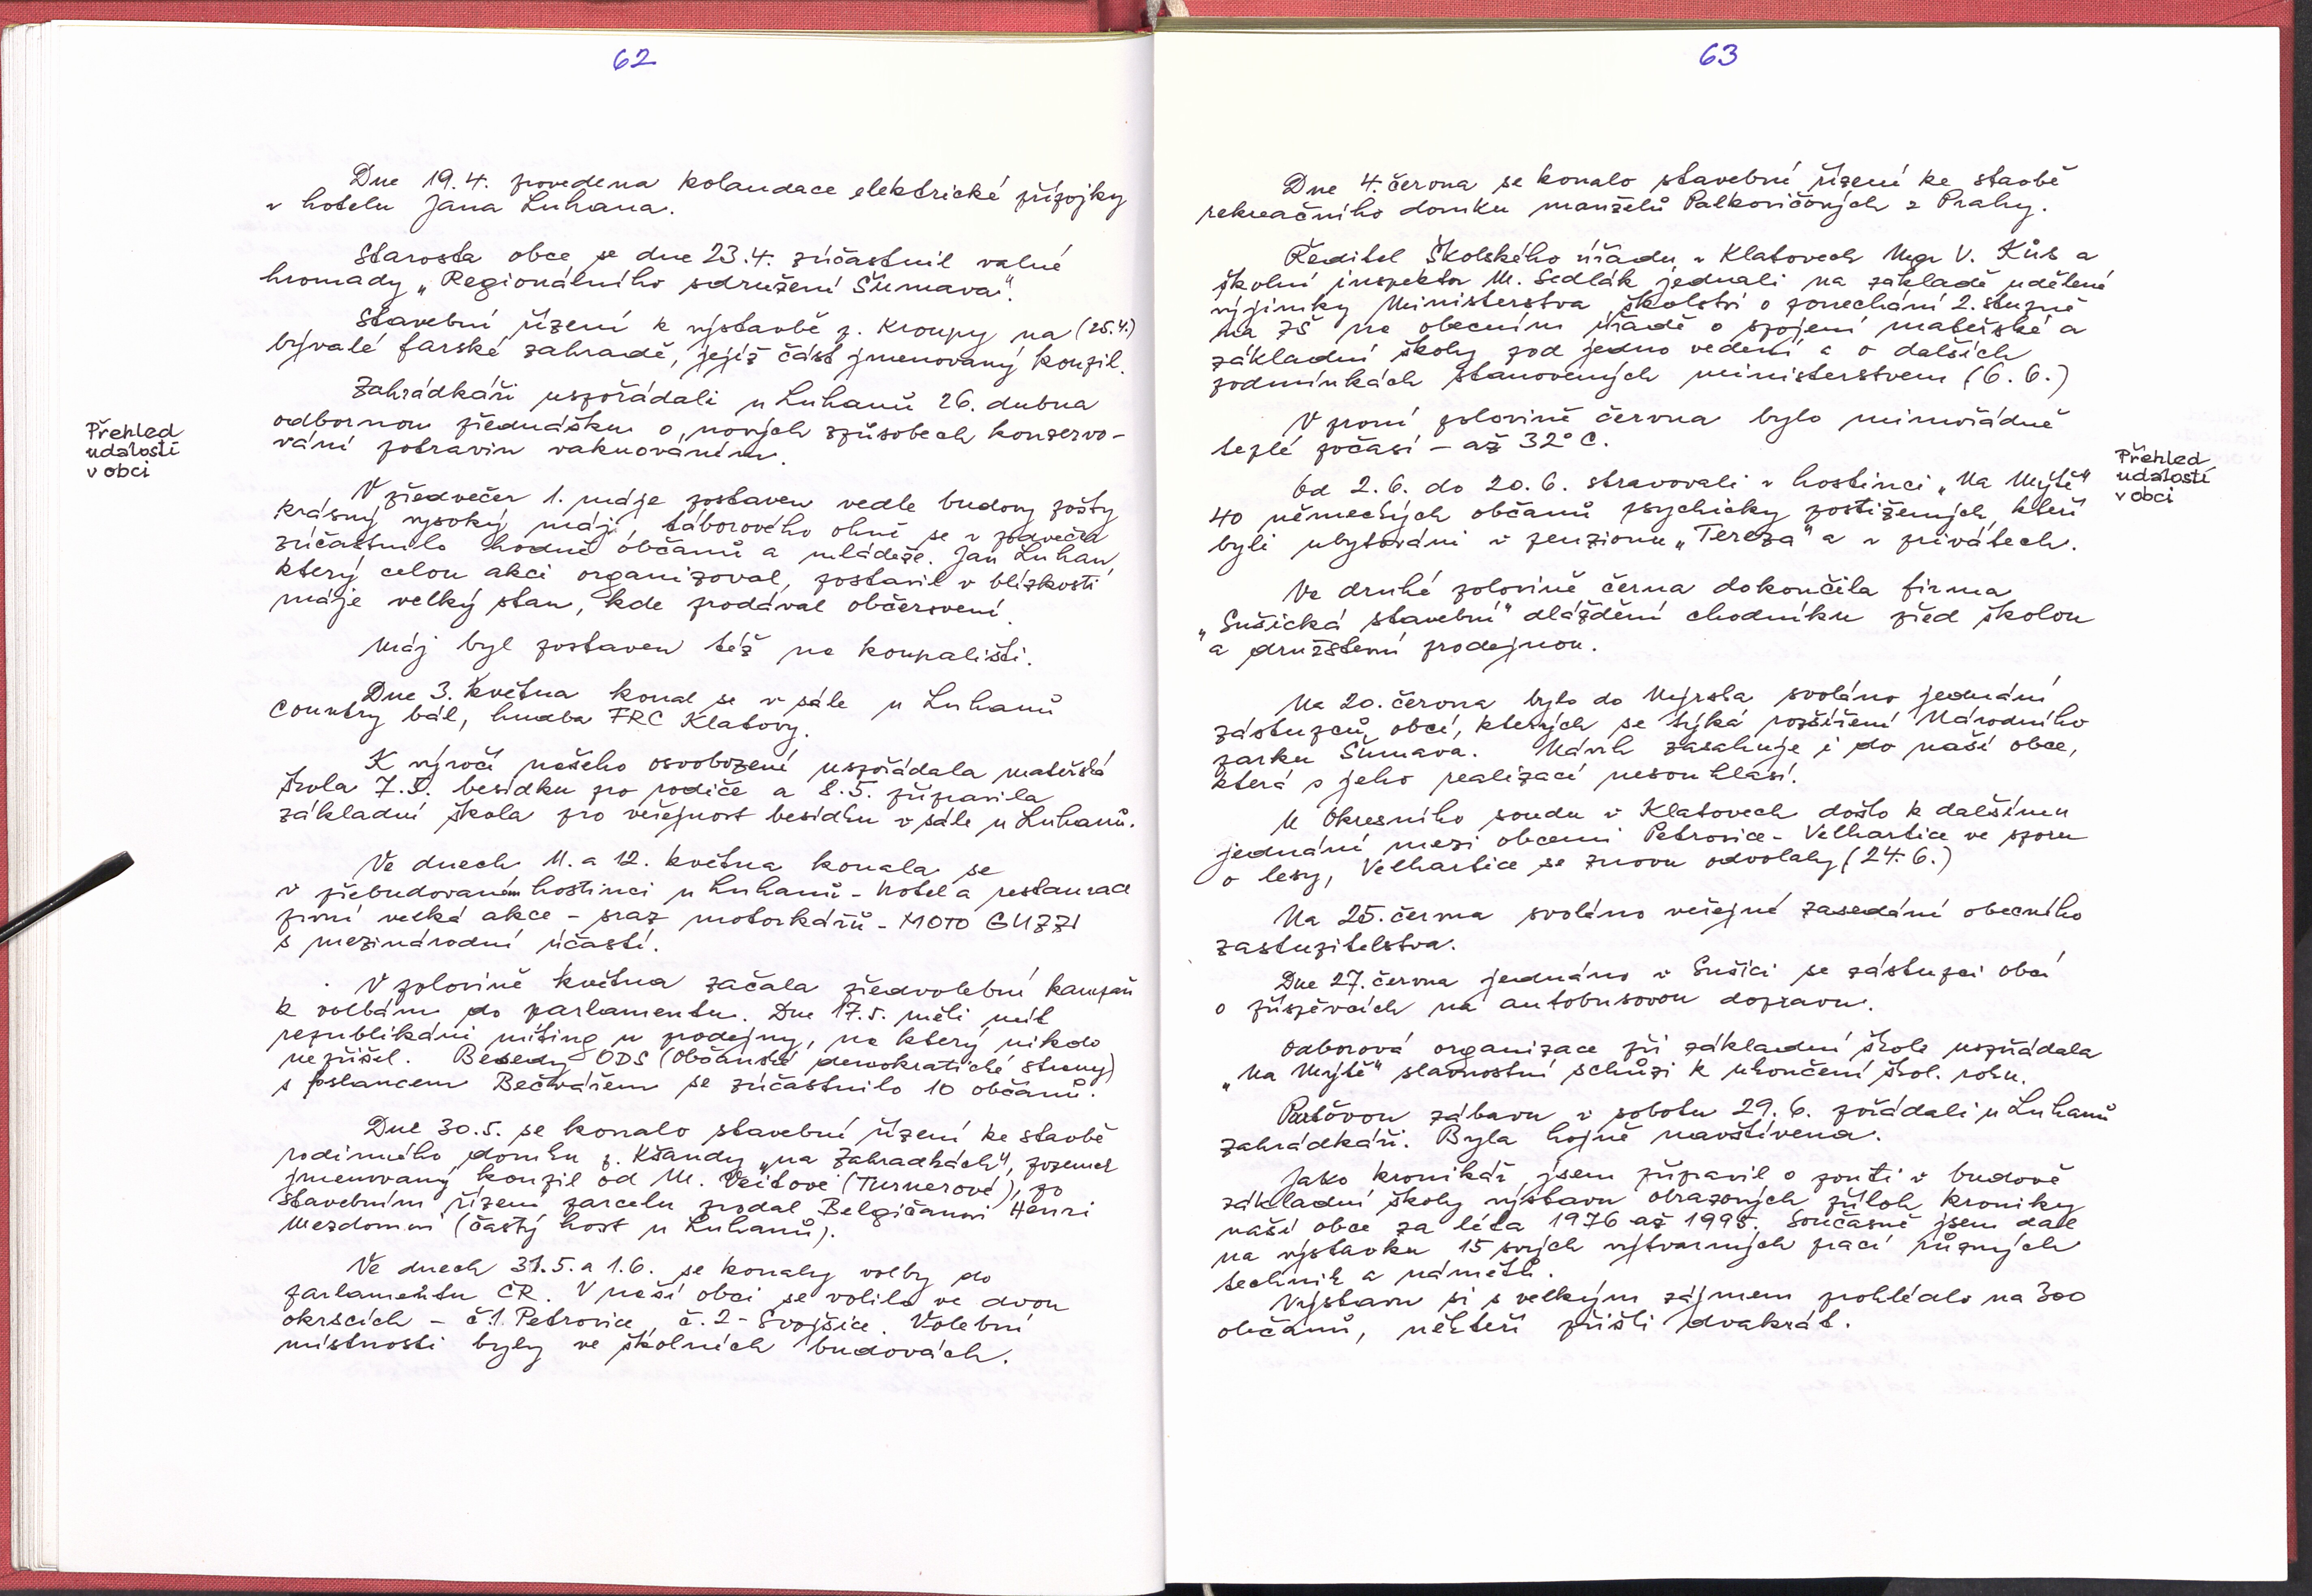 62
Dne 19.4. provedena kolaudace elektrické přípojky
v hotelu Jana Luhana.
Starosta obce se dne 23.4. zúčastnil valné
hromady „Regionálního sdružení Šumava".
Stavební řízení k výstavbě p. Kroupy na (25.4.)
bývalé farské zahradě, jejíž část jmenovaný koupil.
Zahrádkáři uspořádali u Luhanů 26. dubna
odbornou přednášku o nových způsobech konzervo-
vání potravin vakuováním.
Přehled
událostí
v obci
V předvečer 1. máje postaven vedle budovy pošty
krásný vysoký máj, táborového ohně se v podvečer
zúčastnilo hodně občanů a mládeže. Jan Luhan,
který celou akci organizoval, postavil v blízkosti
máje velký stan, kde prodával občersvení.
Máj byl postaven též na koupališti.
Dne 3. května konal se v sále u Luhanů
Country bál, hudba FRC Klatovy.
K výročí našeho osvobození uspořádala mateřská
škola 7.5. besídku pro rodiče a 8.5. připravila
základní škola pro veřejnost besídku v sále u Luhanů.
Ve dnech 11. a 12. května konala se
v přebudovaném hostinci u Luhanů - Hotel a restaurace
první velká akce - sraz motorkářů - MOTO GUZZI
s mezinárodní účastí.
V polovině května začala předvolební kampaň
k volbám do parlamentu. Dne 17.5. měli mít
republikáni míting u prodejny, na který nikdo
nepřišel. Besedy ODS (Občanské demokratické strany)
s poslancem Bečvářem se zúčastnilo 10 občanů.
Dne 30.5. se konalo stavební řízení ke stavbě
rodinného domku p. Kšandy „na Zahradkách", pozemek
jmenovaný koupil od M. Veitové (Turnerové), po
stavebním řízení parcelu prodal Belgičanovi Henri
Mezdomni (častý host u Luhanů).
Ve dnech 31.5. a 1.6. se konaly volby do
parlamentu ČR. V naší obci se volilo ve dvou
okrscích - č.1. Petrovice, č.2 - Svojšice. Volební
místnosti byly ve školních budovách.
63
Dne 4. června se konalo stavební řízení ke stavbě
rekreačního domku manželů Palkovičových z Prahy.
Ředitel Školského úřadu v Klatovech Mgr V. Kůs a
školní inspektor M. Sedlák jednali na základě udělené
výjimky Ministerstva školství o ponechání 2. stupně
na ZŠ na obecním úřadě o spojení mateřské a
základní školy pod jedno vedení a o dalších
podmínkách stanovených ministerstvem (6.6.)
V první polovině června bylo mimořádně
teplé počasí - až 32°C.
Přehled
událostí
v obci
Od 2.6. do 20.6. stravovali v hostinci „Na Mýtě"
40 německých občanů psychicky postižených, kteří
byli ubytováni v penzionu „Tereza" a v privátech.
Ve druhé polovině černa dokončila firma
„Sušická stavební" dláždění chodníku před školou
a družstevní prodejnou.
Na 20. června bylo do Nýrska svoláno jednání
zástupců obcí, kterých se týká rozšíření Národního
parku Šumava. Návrh zasahuje i do naší obce,
která s jeho realizací nesouhlasí.
U Okresního soudu v Klatovech došlo k dalšímu
jednání mezi obcemi Petrovice - Velhartice ve sporu
o lesy, Velhartice se znovu odvolaly (24.6.)
Na 25. června svoláno veřejné zasedání obecního
zastupitelstva.
Dne 27. června jednáno v Sušici se zástupci obcí
o příspěvcích na autobusovou dopravu.
Odborová organizace při základní škole uspořádala
„Na Mýtě" slavnostní schůzi k ukončení škol. roku.
Pouťovou zábavu v sobotu 29.6. pořádali u Luhanů
zahrádkáři. Byla hojně navštívena.
Jako kronikář jsem připravil o pouti v budově
základní školy výstavu obrazových příloh kroniky
naší obce za léta 1976 až 1995. Současně jsem dal
na výstavku 15 svých výtvarných prací různých
technik a námětů.
Výstavu si s velkým zájmem prohlédlo na 300
občanů, někteří přišli dvakrát.